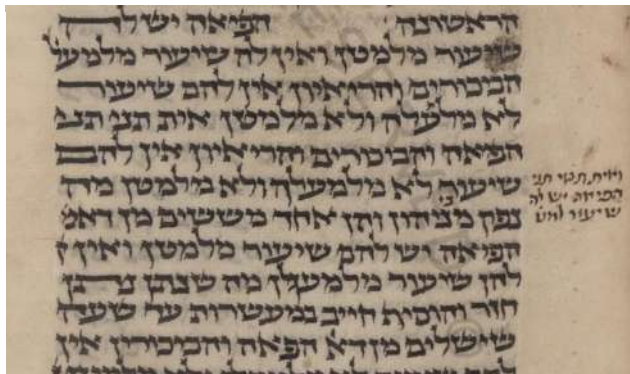 הראשונה הפיאה יש לה
שיעור מלמטן ואין לה שיעור מלמעל
הבכורים והריאיון אין להם שיעור
לא מלעלה ולא מלמטן אית תניי תני
הפיאה והבכורים והריאיון אין להם
שיעור לא מלמעלה ולא מלמטן מה
נפק מביניהון אחד מששים מן דאמ
הפיאה יש להם שיעור מלמטן ואין
להן שיעור מלמעלן מה שנתן נתן
חזר והוסיף חייב במעשרות עד שעה
שישלים מן דא הפאה והבכורין אין
ואית תניי תני
הפיאה יש לה
שיעור למט